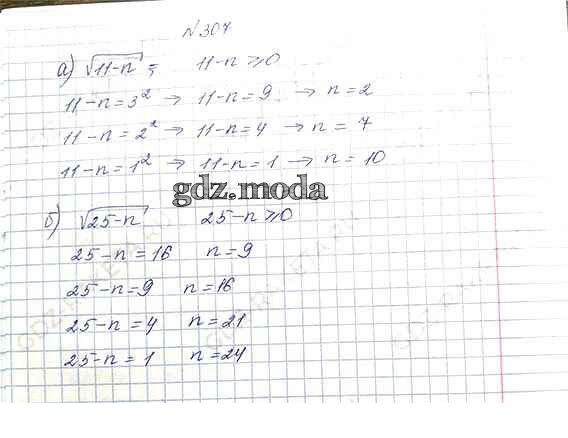 №307
а) √11-n = 11-n ⩾ 0
11-n=3² → 11-n=9 → n=2
11-n=2² → 11-n=4 → n=7
11-n=1² → 11-n=1 → n=10
gdz.moda
б) √25-n 25-n⩾0
25-n=16 n=9
25-n=9 n=16
25-n=4 n=21
25-n=1 n=24